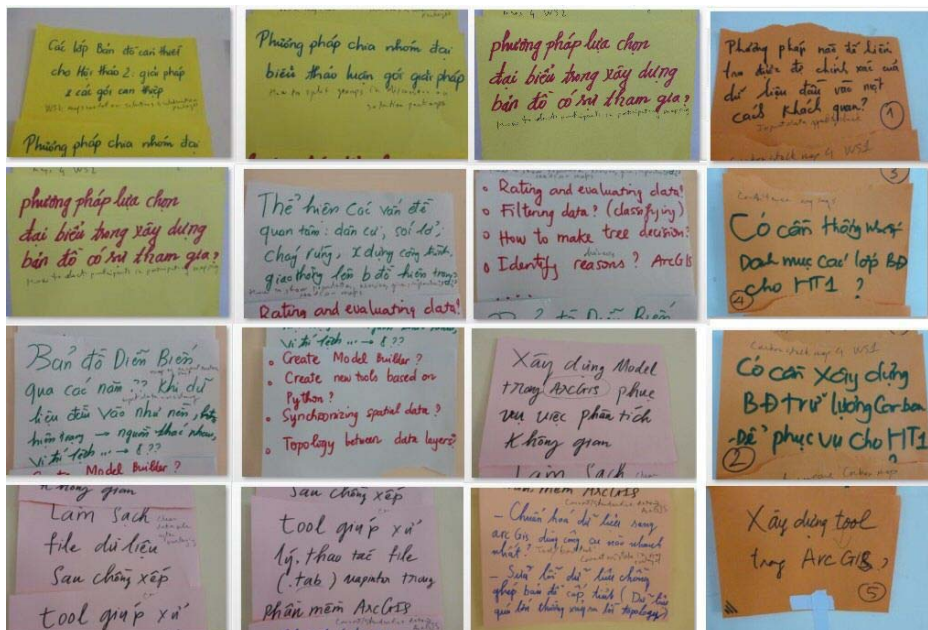 Các lớp Bản đồ cần thiết
cho Hội thảo 2: giải pháp
& các gói can thiệp
Phương pháp chia nhóm đại
Phương pháp chia nhóm đại
biểu thảo luận gói giải pháp
How to split groups in discussion on
solution packages
phương pháp lựa chọn
đại biểu trong xây dựng
bản đồ có sự tham gia?
How to select participants in participatory mapping
Phương pháp nào để kiểm
tra được độ chính xác của
dữ liệu đầu vào một
cách khách quan?
Input data quality check
1
Carbon stock map 4 WS1
phương pháp lựa chọn
đại biểu trong xây dựng
bản đồ có sự tham gia?
How to select participants in participatory mapping
Thể hiện các vấn đề
quan tâm: dân cư, sói lở,
cháy rừng, x dựng công trình,
giao thông lên b đồ hiện trạng?
Rating and evaluating data!
Rating and evaluating data!
Filtering data? (classifying)
How to make tree decision?
Identify reasons? ArcGIS
....
3
Có cần thống nhất
Danh mục các lớp BĐ
cho HT1?
4
Bản đồ Diễn Biến
qua các năm?? khi dữ
liệu đầu vào như nền,
hiện trạng → nguồn khác nhau,
Vị trí lệch ... → ???
Model Builder?
Create Model Builder?
Create new tools based on
Python?
Synchronizing spatial data?
Topology between data layers?
Xây dựng Model
trong ArcGIS phục
vụ việc phân tích
không gian
Làm Sạch
Carbon stock map 4 WS1
Có cần xây dựng
BĐ trữ lượng Carbon
Để phục vụ cho HT1
?
2
không gian
Làm Sạch
file dữ liệu
Sau chồng xếp
tool giúp xử
Sau chồng xếp
tool giúp xử
lý, thao tác file
(.tab) mapinfor trong
phần mềm ArcGIS
phần mềm ArcGIS
- Chuẩn hoá dữ liệu sang
arcGis dùng công cụ nào nhanh
nhất?
- Sửa lỗi dữ liệu chồng
ghép bản đồ cấp tỉnh (Dữ liệu
quá lớn thường xảy ra lỗi topology)
Xây dựng tool
trong ArcGIS?
5